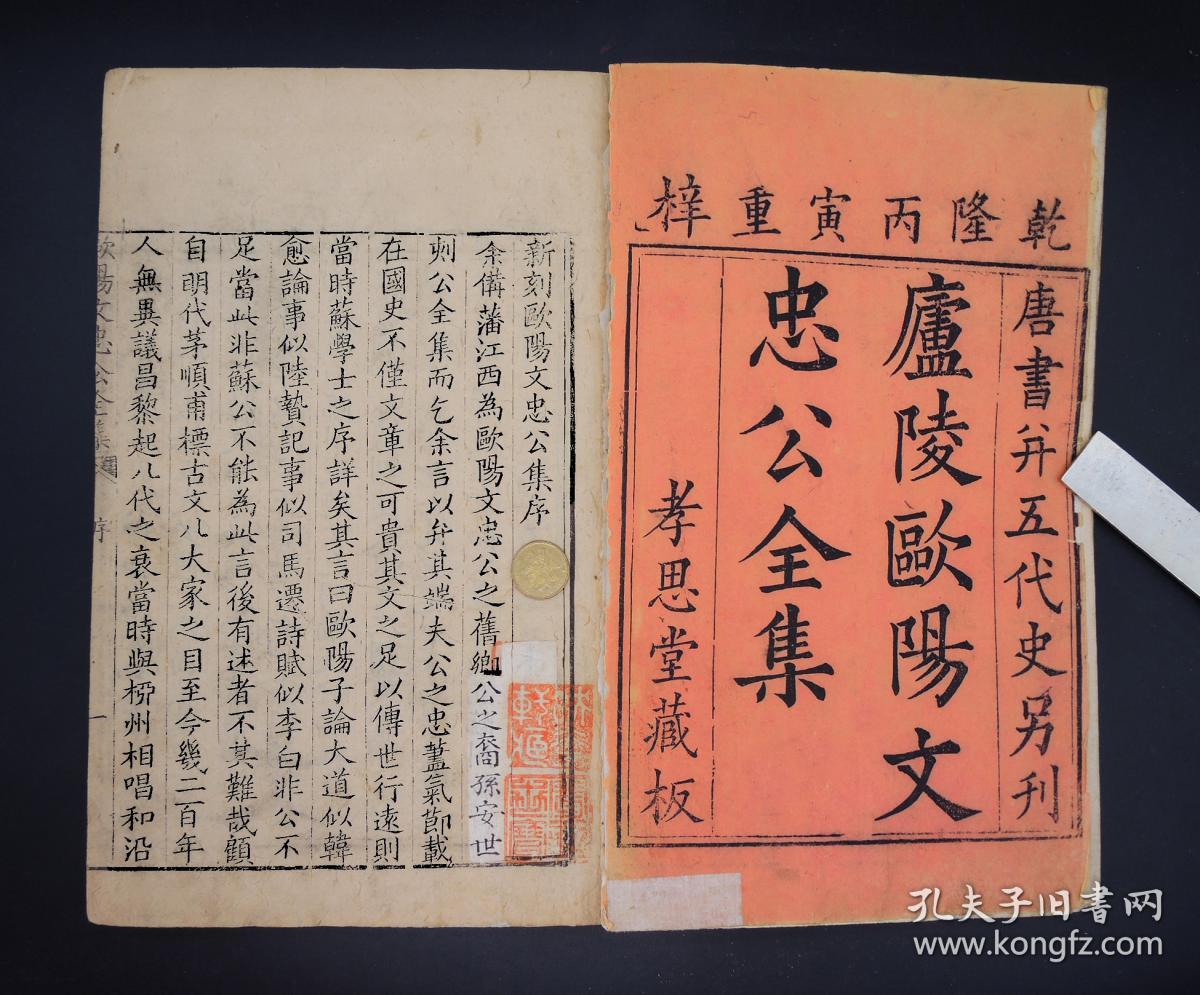 乾隆丙寅重梓
唐書并五代史另刊
廬陵歐陽文
忠公全集
孝思堂藏板
新刻歐陽文忠公集序
余備藩江西為歐陽文忠公之舊鄉公之裔孫安世
刺公全集而乞余言以弁其端夫公之忠藎氣節載
在國史不僅文章之可貴其文之足以傳世行遠則
當時蘇學士之序詳矣其言曰歐陽子論大道似韓
愈論事似陸贄記事似司馬遷詩賦似李白非公不
足當此非蘇公不能為此言後有述者不其難哉顧
自明代茅順甫標古文八大家之目至今幾二百年
人無異議昌黎起八代之衰當時與栁州相唱和沿
歐陽文忠公全集
序
一
孔夫子旧书网
www.kongfz.com